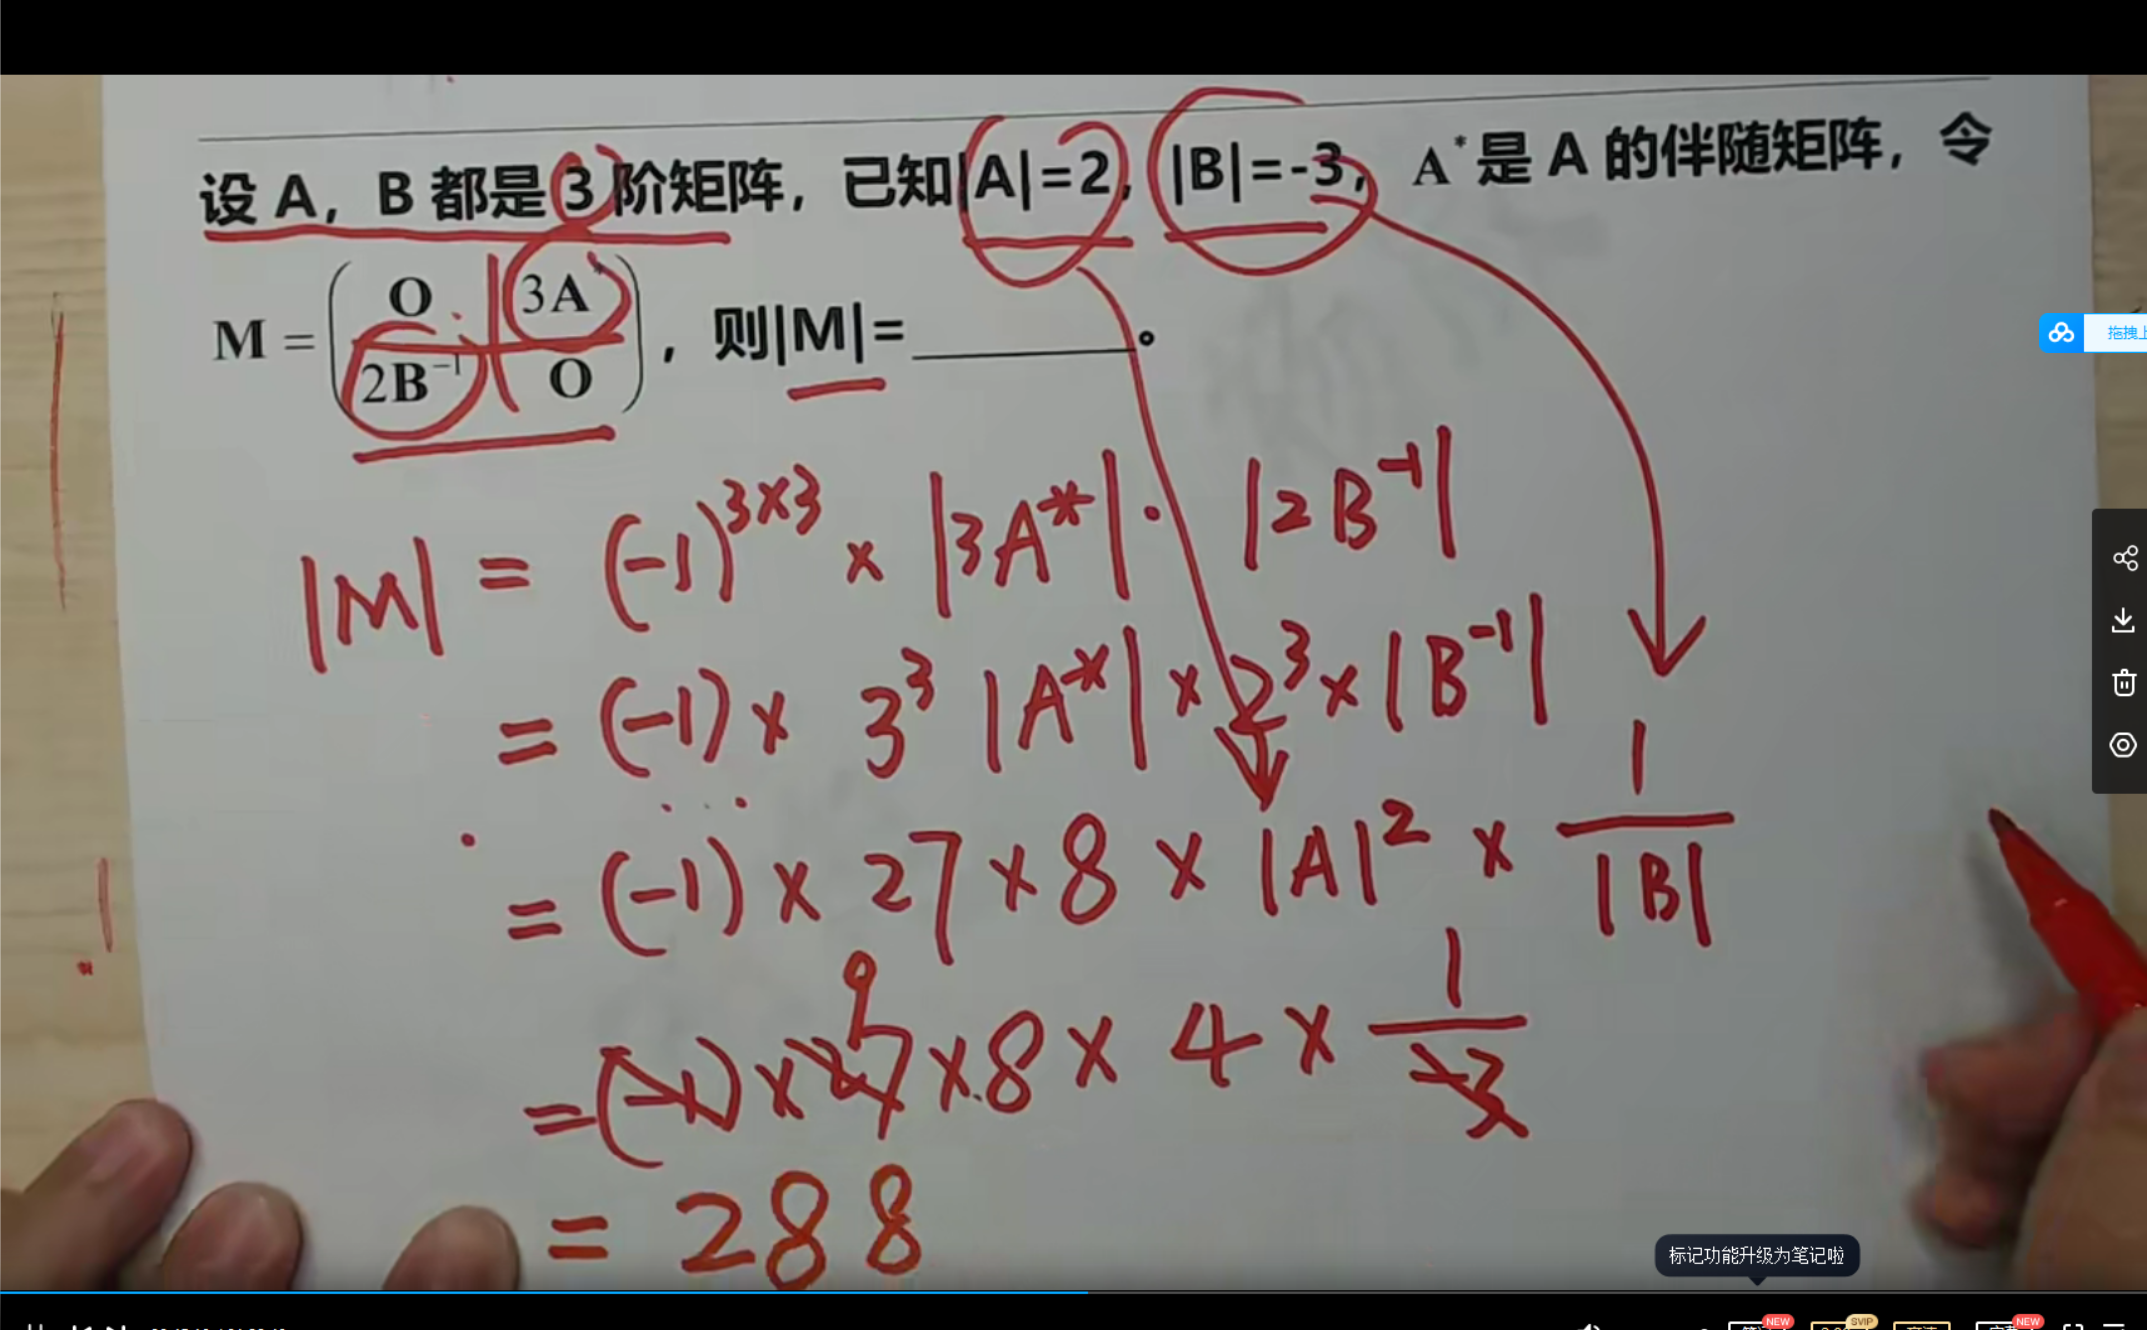 设 A，B 都是 3 阶矩阵，已知|A|=2，|B|=-3， A* 是 A 的伴随矩阵，令
M = ( O 3A*
2B⁻¹ O ) ，则|M|=________。
拖拽上
|M| = (-1)^{3×3} × |3A*| · |2B⁻¹|
= (-1) × 3³ |A*| × 2³ × |B⁻¹|
= (-1) × 27 × 8 × |A|² × 1/|B|
9
= (-1) × 27 × 8 × 4 × 1/-3
= 288
标记功能升级为笔记啦
NEW
SVIP
NEW